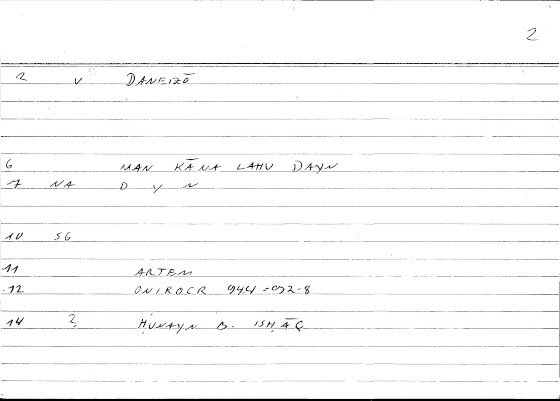 2
2 V DANEIZŌ
6 MAN KĀNA LAHU DAYN
7 NA D Y N
10 SG
11 ARTEM
12 ONIROCR 944-072-8
14 2 ḤUNAYN B. ISḤĀQ